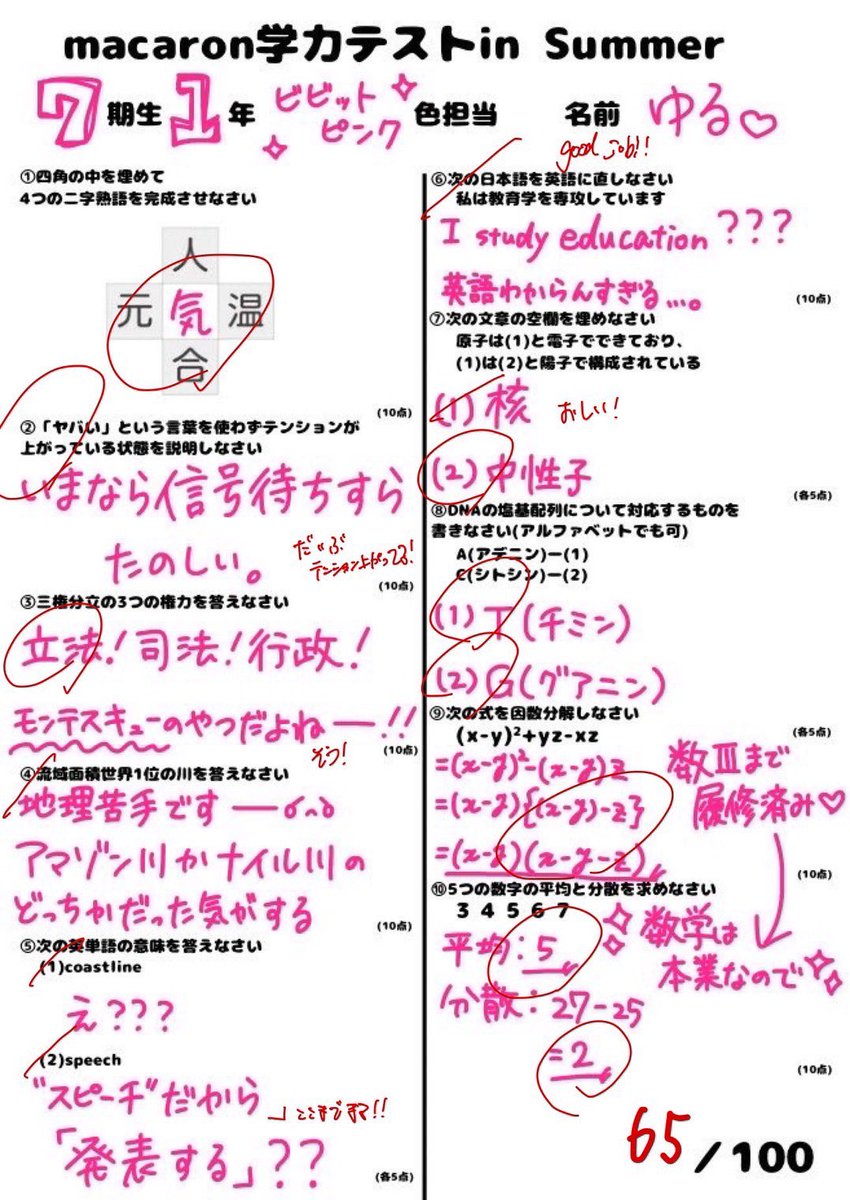 macaron学力テストin Summer
7期生1年 ビビットピンク色担当 名前 ゆる♡
①四角の中を埋めて
4つの二字熟語を完成させなさい
人
元 気 温
合
(10点)
②「ヤバい」という言葉を使わずテンションが
上がっている状態を説明しなさい
いまなら信号待ちすら
たのしい。
だいぶ
テンション上がってる!
(10点)
③三権分立の3つの権力を答えなさい
立法!司法!行政!
モンテスキューのやつだよねー!!
そう!
(10点)
④流域面積世界1位の川を答えなさい
地理苦手ですー
アマゾン川かナイル川の
どっちかだった気がする
(10点)
⑤次の英単語の意味を答えなさい
(1)coastline
え???
(2)speech
"スピーチ"だから
」ここまで!!
「発表する」??
(各5点)
good job!!
⑥次の日本語を英語に直しなさい
私は教育学を専攻しています
I study education ???
英語わからんすぎる...。
(10点)
⑦次の文章の空欄を埋めなさい
原子は(1)と電子でできており、
(1)は(2)と陽子で構成されている
(1)核
おしい!
(2)中性子
(各5点)
⑧DNAの塩基配列について対応するものを
書きなさい(アルファベットでも可)
A(アデニン)ー(1)
C(シトシン)ー(2)
(1)T(チミン)
(2)G(グアニン)
(各5点)
⑨次の式を因数分解しなさい
(x-y)²+yz-xz
=(x-y)²-(x-y)z
=(x-y){(x-y)-z}
=(x-y)(x-y-z)
数Ⅲまで
履修済み♡
(10点)
⑩5つの数字の平均と分散を求めなさい
3 4 5 6 7
平均:5
分散:27-25
=2
数学は
本業なので
(10点)
65/100